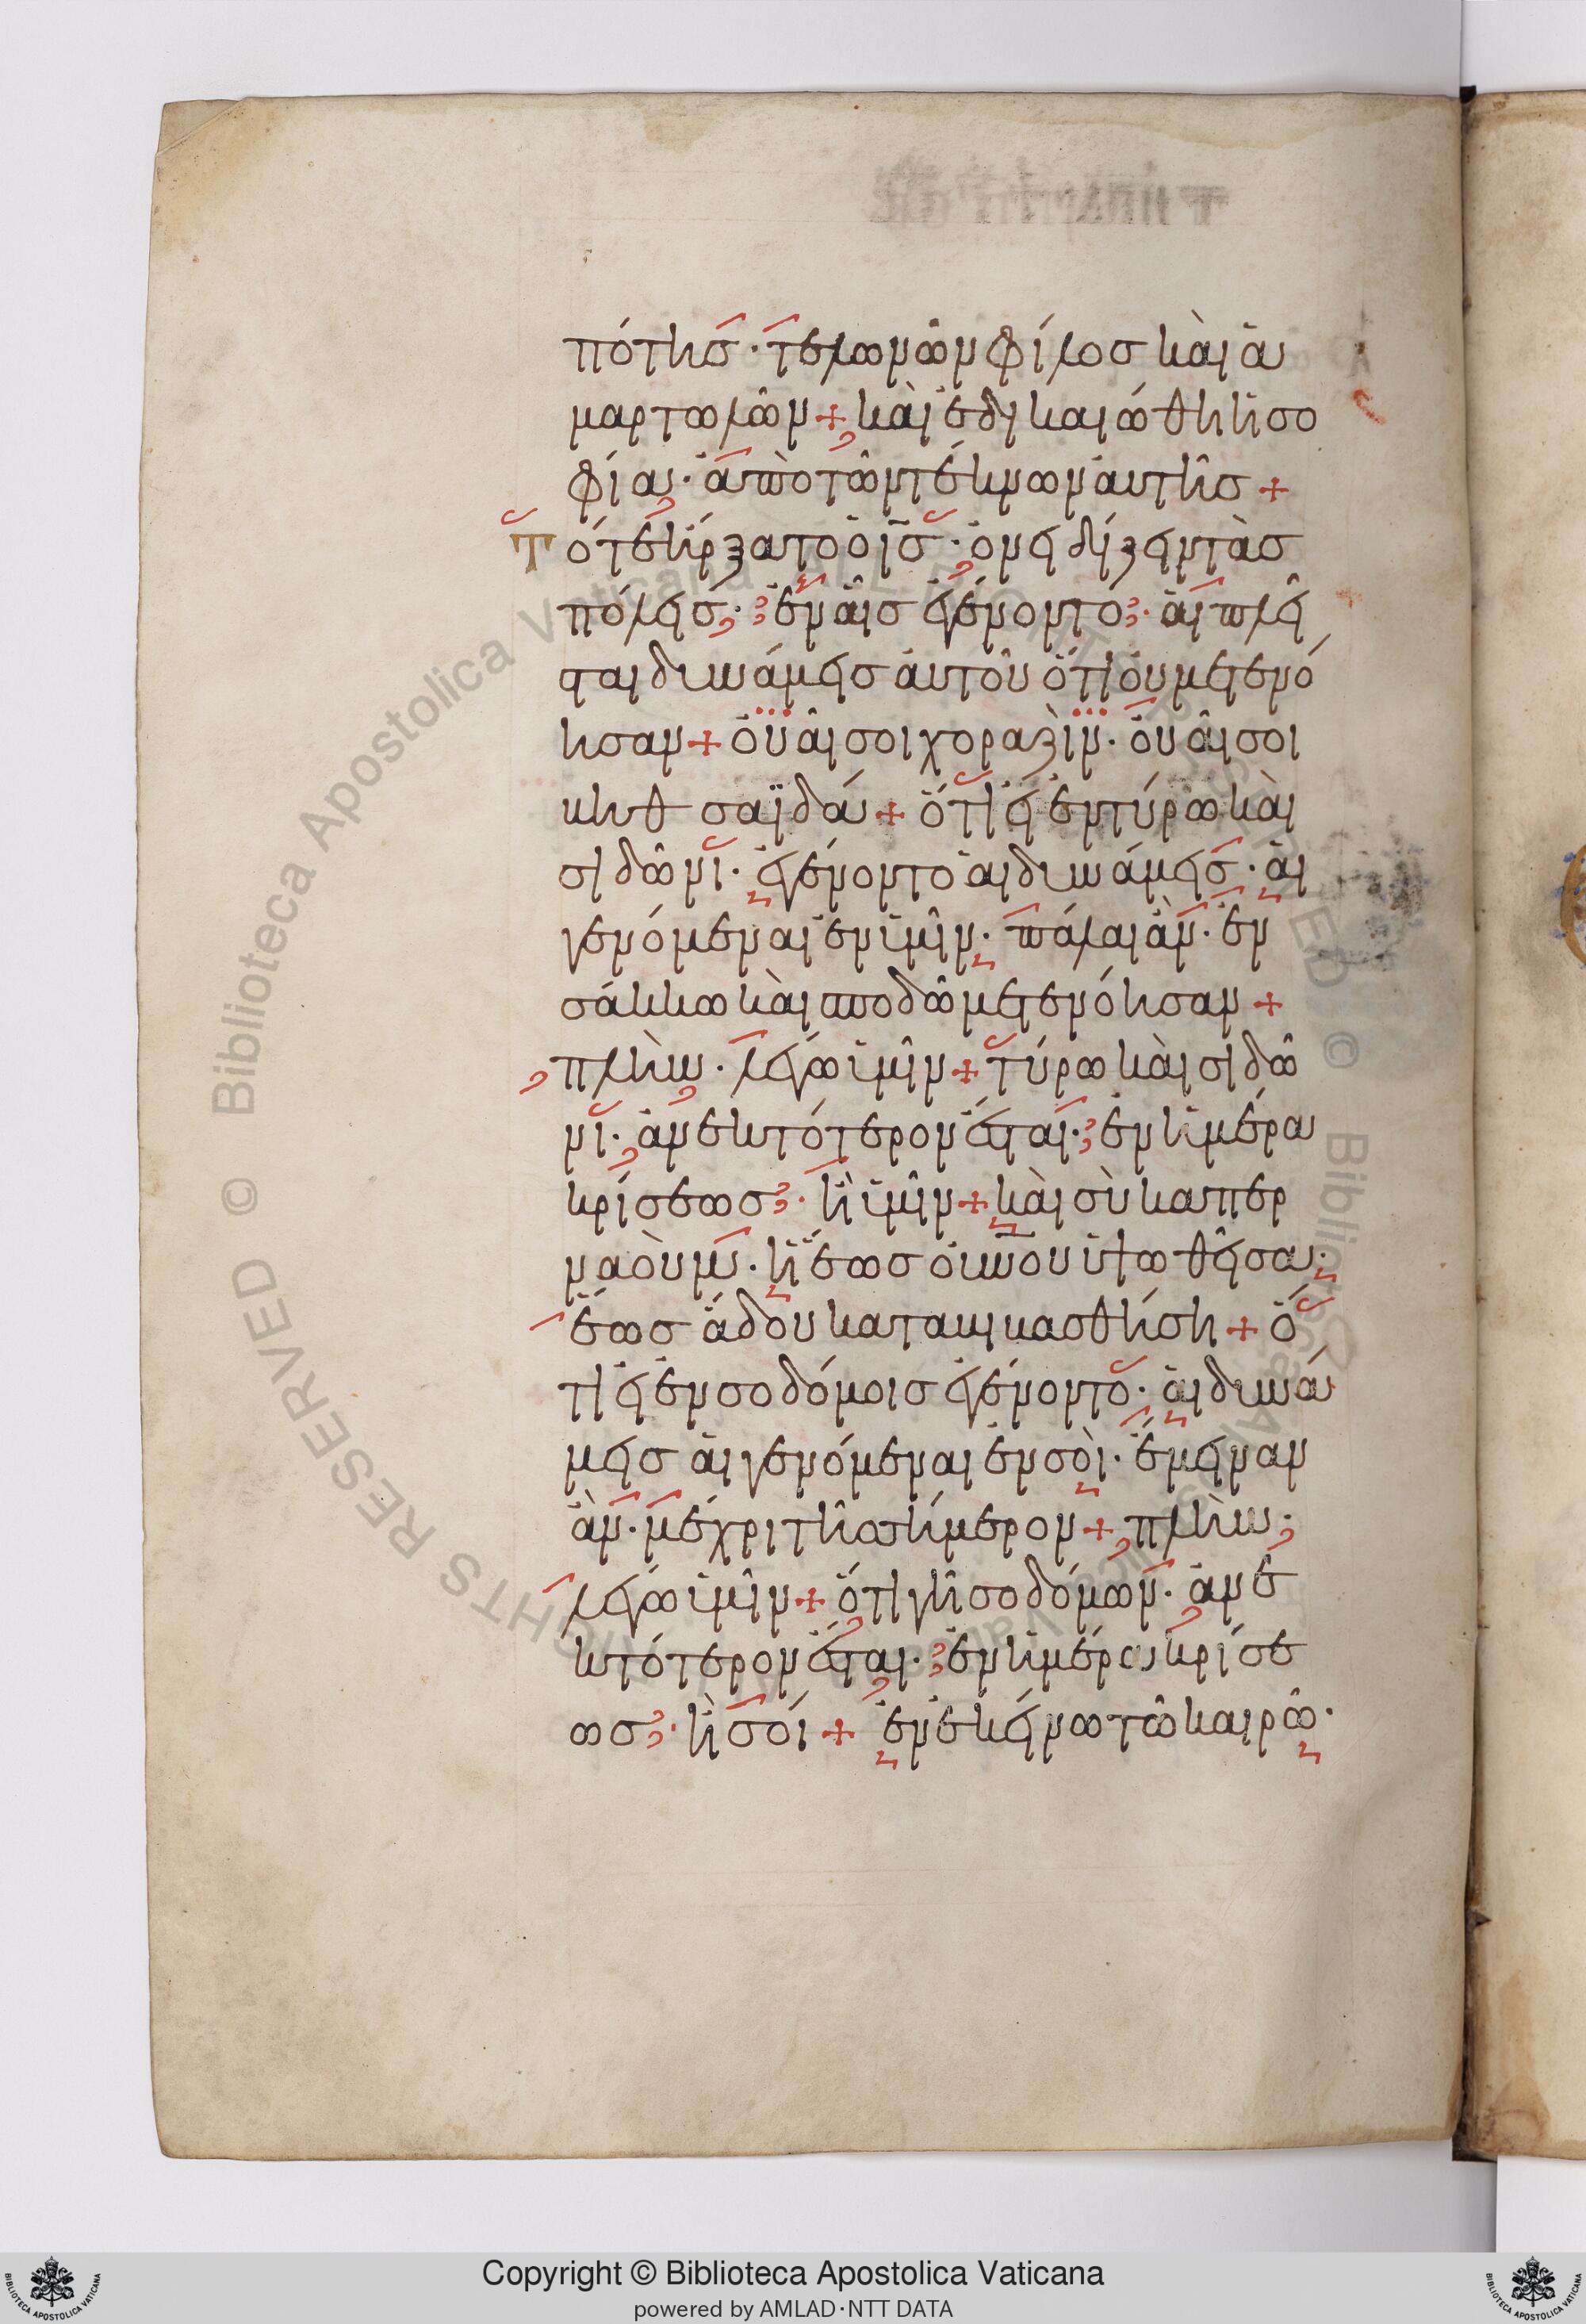 πότης· τελωνῶν φίλος καὶ ἁ
μαρτωλῶν + καὶ ἐδικαιώθη ἡ σο
φία· ἀπὸ τῶν τέκνων αὐτῆς +
Τότε ἤρξατο ὁ ις· ὀνειδίζειν τὰς
πόλεις· ἐν αἷς ἐγένοντο· αἱ πλεῖ
σται δυνάμεις αὐτοῦ ὅτι οὐ μετενό
ησαν + οὐαί σοι χοραζὶν· οὐαί σοι
βηθσαϊδά + ὅτι εἰ ἐν τύρω καὶ
σιδῶνι· ἐγένοντο αἱ δυνάμεις· αἱ
γενόμεναι ἐν ὑμῖν· πάλαι ἂν· ἐν
σάκκω καὶ σποδῶ μετενόησαν +
πλὴν· λέγω ὑμῖν + τύρω καὶ σιδῶ
νι· ἀνεκτότερον ἔσται· ἐν ἡμέρα
κρίσεως· ἢ ὑμῖν + καὶ σὺ καπερ
ναοὺμ· ἡ ἕως οὐνου ὑψωθεῖσα·
ἕως ἅδου καταβιβασθήση + ὅ
τι εἰ ἐν σοδόμοις ἐγένοντο· αἱ δυνά
μεις αἱ γενόμεναι ἐν σοὶ· ἔμειναν
ἂν· μέχρι τῆς σήμερον + πλὴν·
λέγω ὑμῖν + ὅτι γῆ σοδόμων· ἀνε
κτότερον ἔσται· ἐν ἡμέρα κρίσε
ως· ἢ σοί + ἐν ἐκείνω τῶ καιρῶ·
Copyright © Biblioteca Apostolica Vaticana
powered by AMLAD·NTT DATA